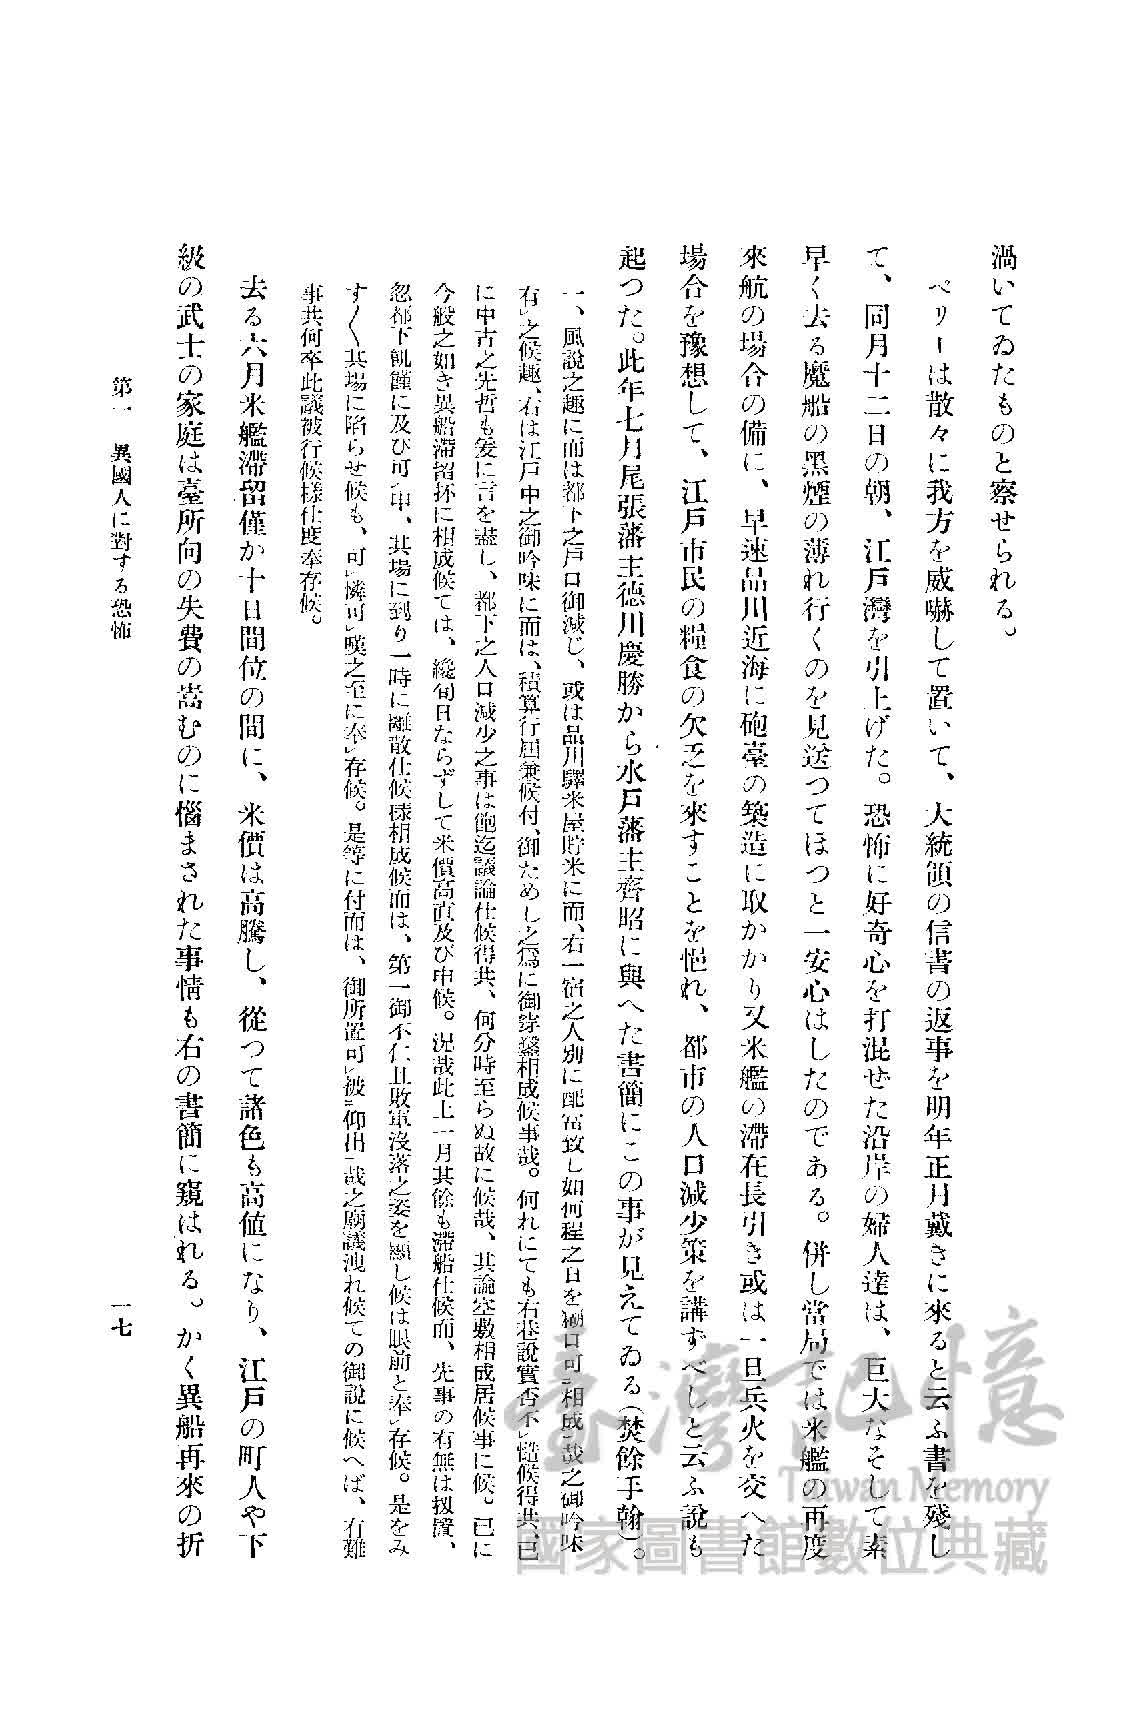 渦いてゐたものと察せられる。
ペリーは散々に我方を威嚇して置いて、大統領の信書の返事を明年正月戴きに來ると云ふ書を殘し
て、同月十二日の朝、江戸灣を引上げた。恐怖に好奇心を打混ぜた沿岸の婦人達は、巨大なそして素
早く去る魔船の黑煙の薄れ行くのを見送つてほつと一安心はしたのである。併し當局では米艦の再度
來航の場合の備に、早速品川近海に砲臺の築造に取かかり又米艦の滯在長引き或は一旦兵火を交へた
場合を豫想して、江戸市民の糧食の欠乏を來すことを悒れ、都市の人口減少策を講ずべしと云ふ說も
起つた。此年七月尾張藩主德川慶勝から水戸藩主齊昭に與へた書簡にこの事が見えてゐる(焚餘手翰)。
一、風說之趣に而は都下之戸口御減じ、或は品川驛米屋貯米に而、右一宿之人別に配當致し如何程之日を糊口可㆓相成㆒哉之御吟味
有㆑之候趣、右は江戸中之御吟味に而は、積算行屆兼候付、御ためし之爲に御穿鑿相成候事哉。何れにても右巷說實否不㆑慥候得共、已
に中古之先哲も爰に言を盡し、都下之人口減少之事は飽迄議論仕候得共、何分時至らぬ故に候哉、其論空敷相成居候事に候。已に
今般之如き異船滯留抔に相成候ては、纔旬日ならずして米價高直及び申候。況哉此上一月其餘も滯船仕候而、先事の有無は扨置、
忽都下飢饉に及び可㆑申、其場に到り一時に離散仕候樣相成候而は、第一御不仁且敗軍沒落之姿を顯し候は眼前と奉㆑存候。是をみ
す〱其場に陷らせ候も、可㆑憐可㆑嘆之至に奉㆑存候。是等に付而は、御所置可㆑被㆓仰出㆒哉之廟議洩れ候ての御說に候へば、有難
事共何卒此議被行候樣仕度奉存候。
去る六月米艦滯留僅か十日間位の間に、米價は高騰し、從つて諸色も高値になり、江戸の町人や下
級の武士の家庭は臺所向の失費の嵩むのに惱まされた事情も右の書簡に窺はれる。かく異船再來の折
第一 異國人に對する恐怖
一七
臺灣記憶
Taiwan Memory
國家圖書館數位典藏